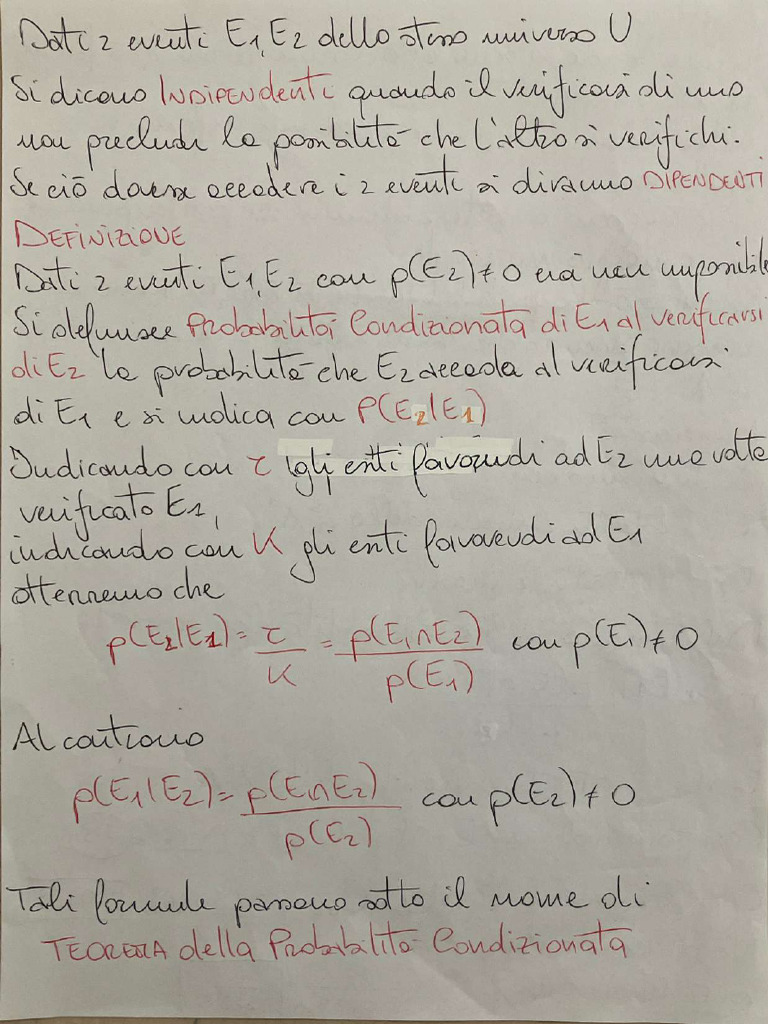 Dati 2 eventi E1, E2 dello stesso universo U
Si dicono INDIPENDENTI quando il verificarsi di uno
non preclude la possibilità che l'altro si verifichi.
Se ciò dovesse accadere i 2 eventi si diranno DIPENDENTI
DEFINIZIONE
Dati 2 eventi E1, E2 con p(E2) ≠ 0 cioè non impossibile
Si definisce Probabilità Condizionata di E1 al verificarsi
di E2 la probabilità che E2 accada al verificarsi
di E1 e si indica con P(E2|E1)
Indicando con τ gli enti favorevoli ad E2 una volta
verificato E1,
indicando con K gli enti favorevoli ad E1
otterremo che
p(E2|E1) = τ/K = p(E1∩E2)/p(E1) con p(E1) ≠ 0
Al contrario
p(E1|E2) = p(E1∩E2)/p(E2) con p(E2) ≠ 0
Tali formule passano sotto il nome di
TEOREMA della Probabilità Condizionata